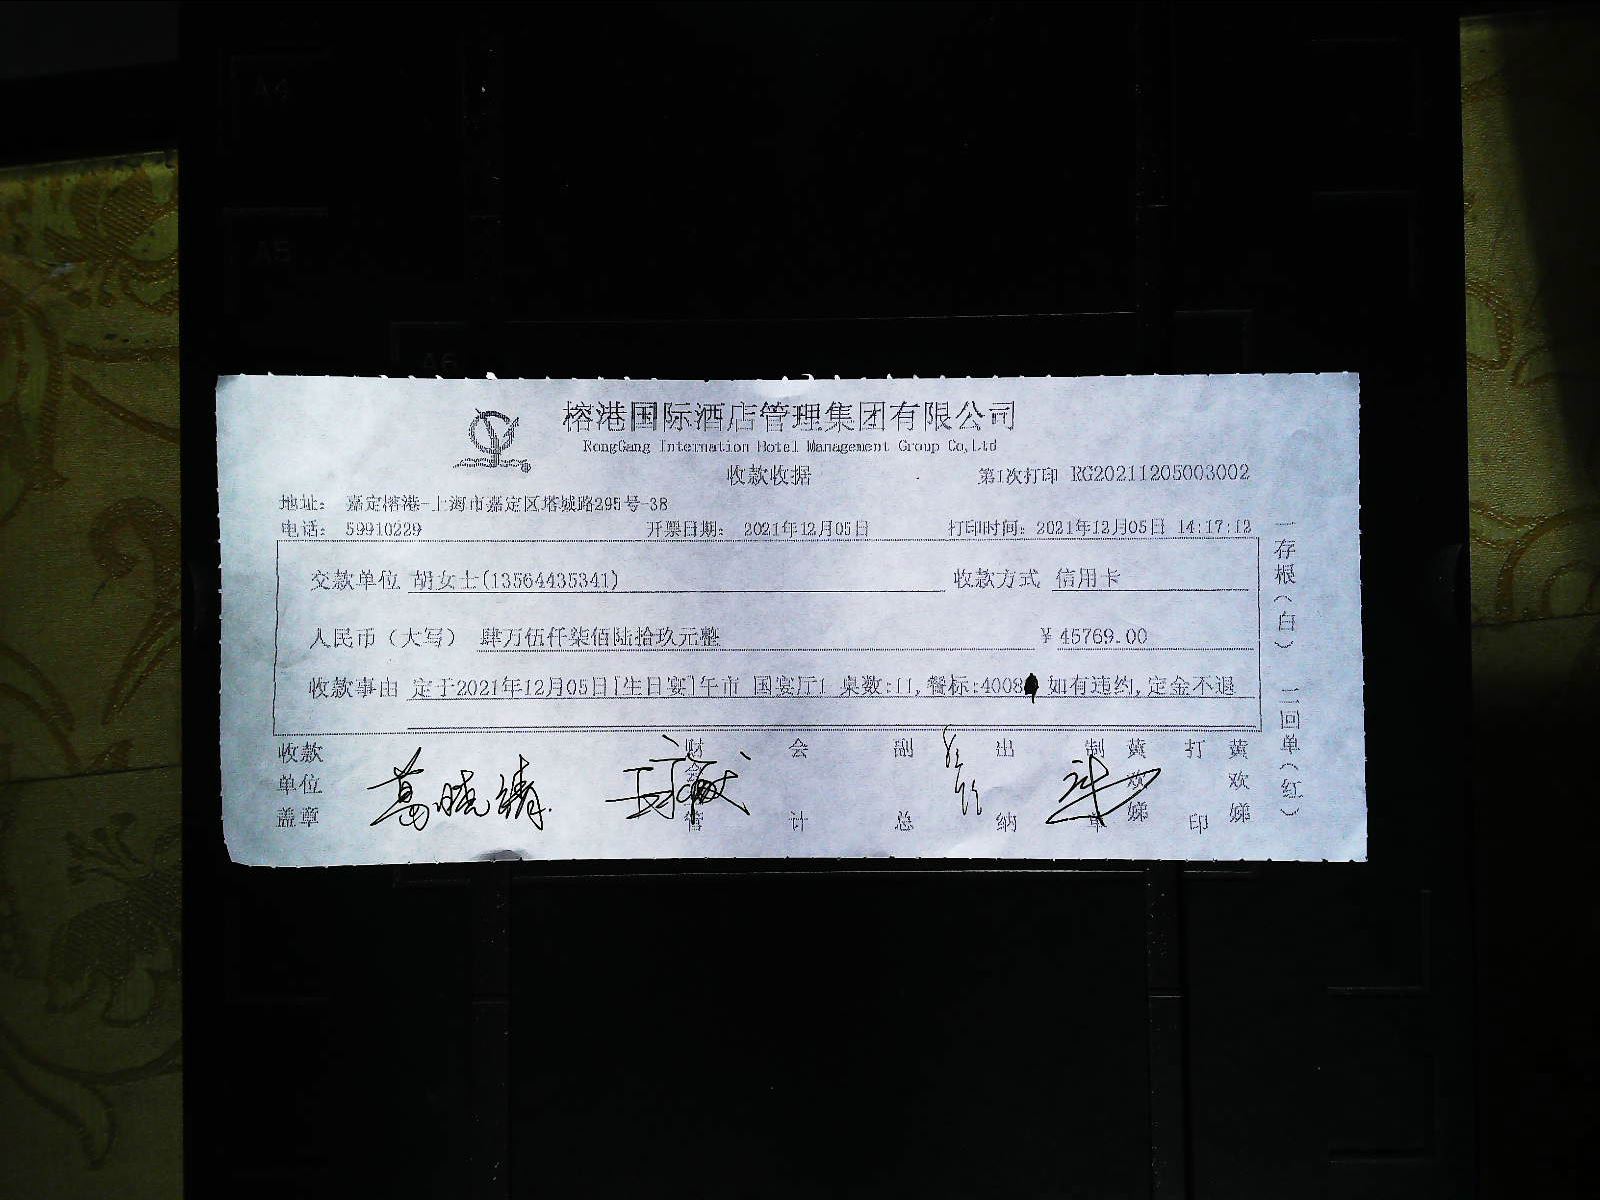 A4
A5
A6
榕港国际酒店管理集团有限公司
RongGang Internation Hotel Management Group Co,Ltd
收款收据
第1次打印 RG20211205003002
地址： 嘉定榕港-上海市嘉定区塔城路295号-38
电话： 59910229 开票日期： 2021年12月05日 打印时间： 2021年12月05日 14:17:12
交款单位 胡女士(13564435341) 收款方式 信用卡
人民币（大写） 肆万伍仟柒佰陆拾玖元整 ￥45769.00
收款事由 定于2021年12月05日[生日宴]午市 国宴厅1 桌数:11,餐标:4008 如有违约,定金不退
收款单位盖章 葛晓婧 财会管 会计 副总 出纳 制单 黄欢娣 打印 黄欢娣
一存根（白） 二回单（红）